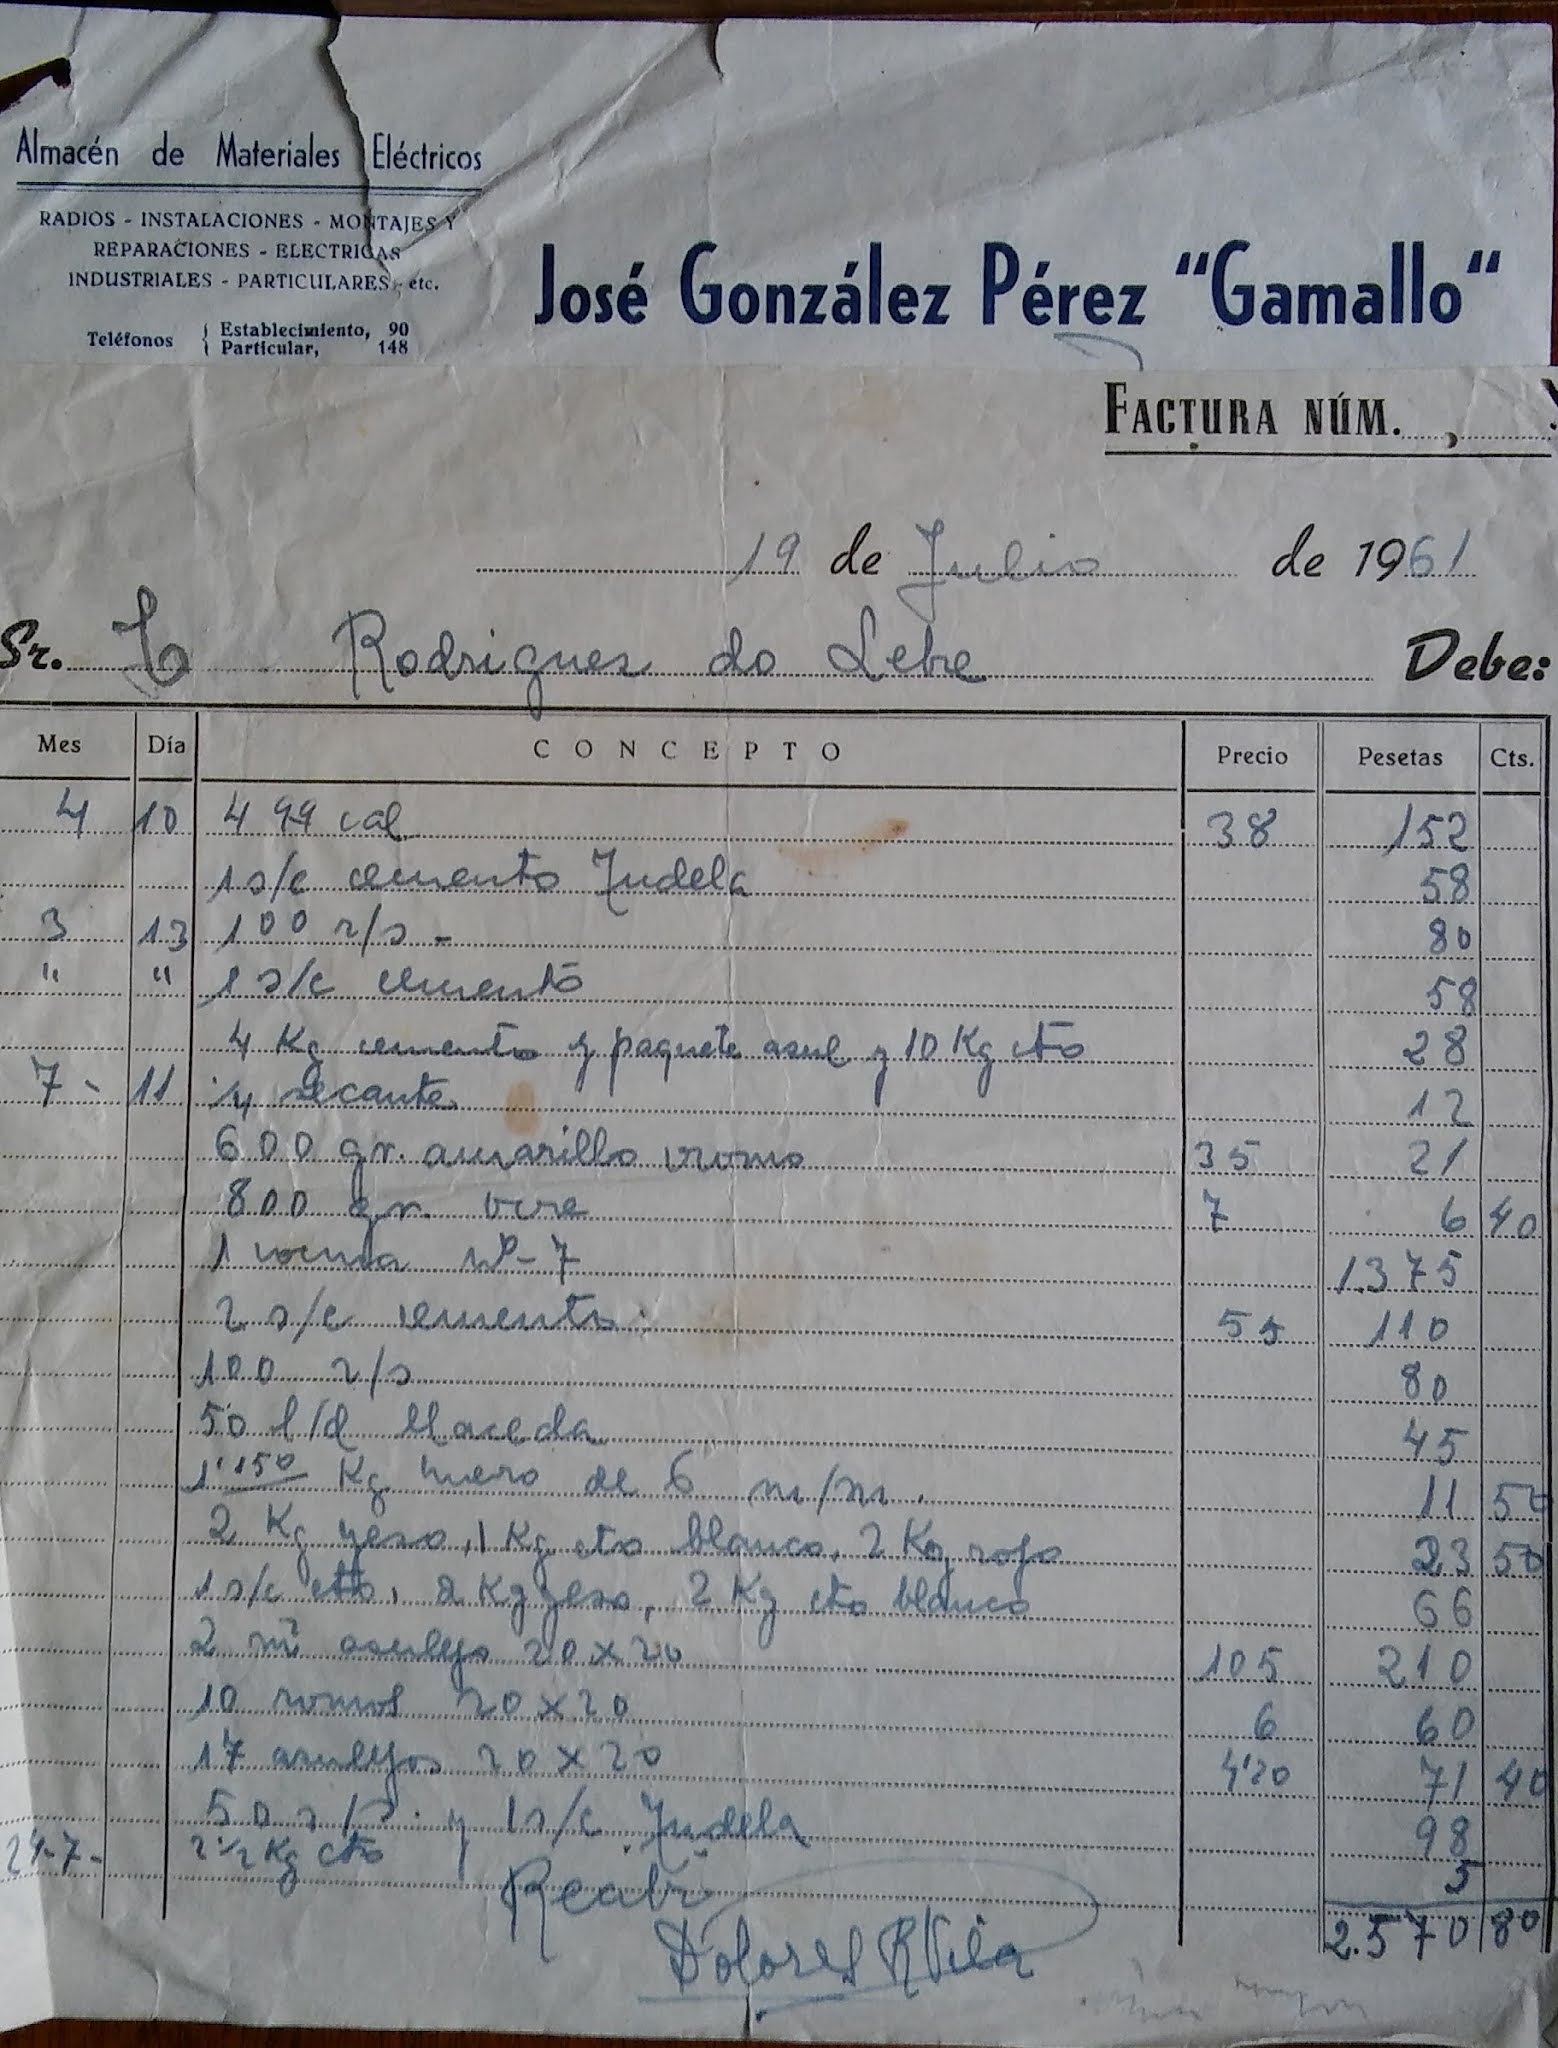 Almacén de Materiales Eléctricos
RADIOS - INSTALACIONES - MONTAJES Y
REPARACIONES - ELECTRICAS
INDUSTRIALES - PARTICULARES, etc.
Teléfonos { Establecimiento, 90
Particular, 148
José González Pérez "Gamallo"
FACTURA NÚM.
19 de Julio de 1961
Sr. Rodrigues do Lebre Debe:
Mes Día CONCEPTO Precio Pesetas Cts.
4 10 4 qq cal 38 152
1 s/c cemento Tudela 58
3 13 100 r/s - 80
" " 1 s/c cemento 58
4 Kg cemento y paquete asul y 10 Kg cto 28
7 - 11 4 secante 12
600 gr. amarillo cromo 35 21
800 gr. ocre 7 6 40
1 cocina nº - 7 1.375
2 s/c cemento 55 110
100 r/s 80
50 l/d Maceda 45
1'150 Kg hierro de 6 m/m. 11 50
2 Kg yeso, 1 Kg cto blanco, 2 Kg rojo 23 50
1 s/c cto, 2 Kg yeso, 2 Kg cto blanco 66
2 m² asulejo 20 x 20 105 210
10 romos 20 x 20 6 60
17 asulejos 20 x 20 4'20 71 40
50 r/s. y 1 s/c Tudela 98
24-7- 2 1/2 Kg cto 5
Recibí 2.570 80
Dolores R Vila